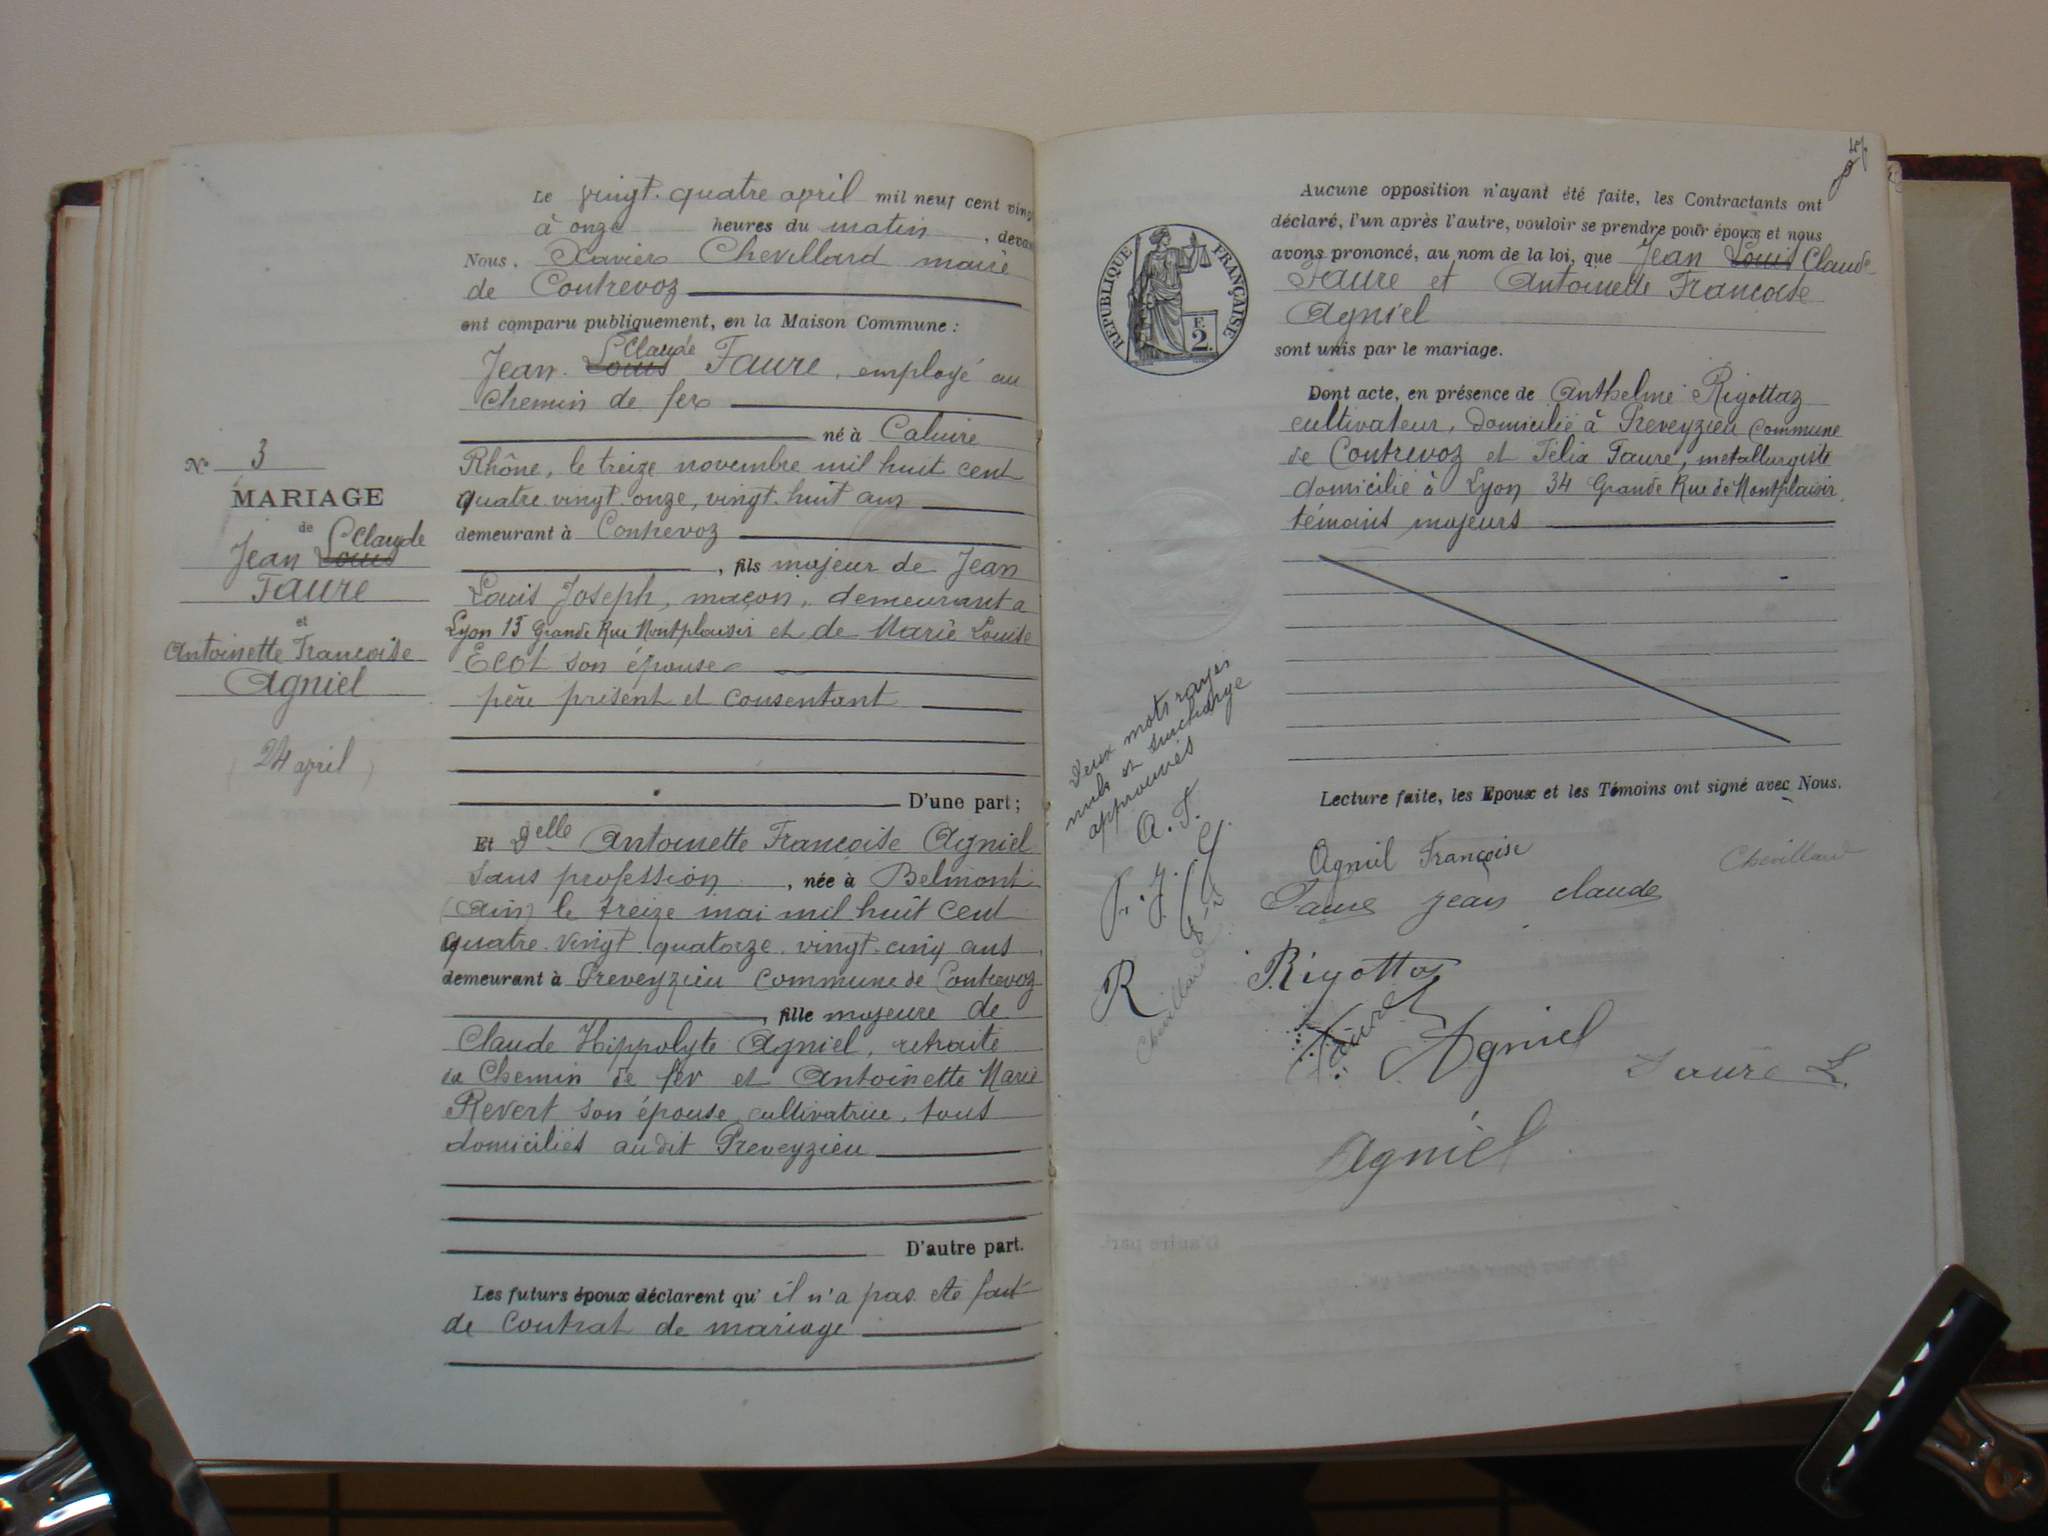 Nº 3
MARIAGE
de
Jean Louis Claude
Faure
et
Antoinette Francoise
Agniel
(24 april)
Le vingt-quatre april mil neuf cent vingt
à onze heures du matin, devant
Nous, Xavier Chevillard maire
de Contrevoz
ont comparu publiquement, en la Maison Commune :
Jean Louis Claude Faure, employé au
Chemin de fer
né à Caluire
Rhône, le treize novembre mil huit cent
quatre vingt onze, vingt-huit ans
demeurant à Contrevoz
, fils majeur de Jean
Louis Joseph, maçon, demeurant a
Lyon 15 Grande Rue Montplaisir et de Marie Louise
Ecot son épouse
père présent et consentant
D'une part ;
Et Delle Antoinette Francoise Agniel
sans profession, née à Belmont
(Ain) le treize mai mil huit cent
quatre-vingt quatorze vingt-cinq ans
demeurant à Preveyzieu commune de Contrevoz
, fille majeure de
Claude Hippolyte Agniel, retraité
du Chemin de fer et Antoinette Marie
Revert son épouse, cultivatrice, tous
domiciliés audit Preveyzieu
D'autre part.
Les futurs époux déclarent qu' il n'a pas été fait
de contrat de mariage
REPUBLIQUE FRANÇAISE
F.
2.
Aucune opposition n'ayant été faite, les Contractants ont
déclaré, l'un après l'autre, vouloir se prendre pour époux et nous
avons prononcé, au nom de la loi, que Jean Louis Claude
Faure et Antoinette Francoise
Agniel
sont unis par le mariage.
Dont acte, en présence de Anthelme Rigottaz
cultivateur, domicilié à Preveyzieu commune
de Contrevoz et Félix Faure, metallurgiste
domicilié à Lyon 34 Grande Rue de Montplaisir,
témoins majeurs
Deux mots rayés
nuls et surcharge
approuvés
A. F.
F. J. C.
R
Chevillard
Lecture faite, les Epoux et les Témoins ont signé avec Nous.
Agniel Françoise
Chevillard
Faure jean claude
Rigottaz
Faure
Agniel
Faure L.
Agniel